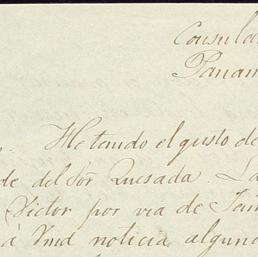 Consula
Panam
He tenido el gusto de
de del Sor Quesada La
Victor por via de
á Vmd noticia algun